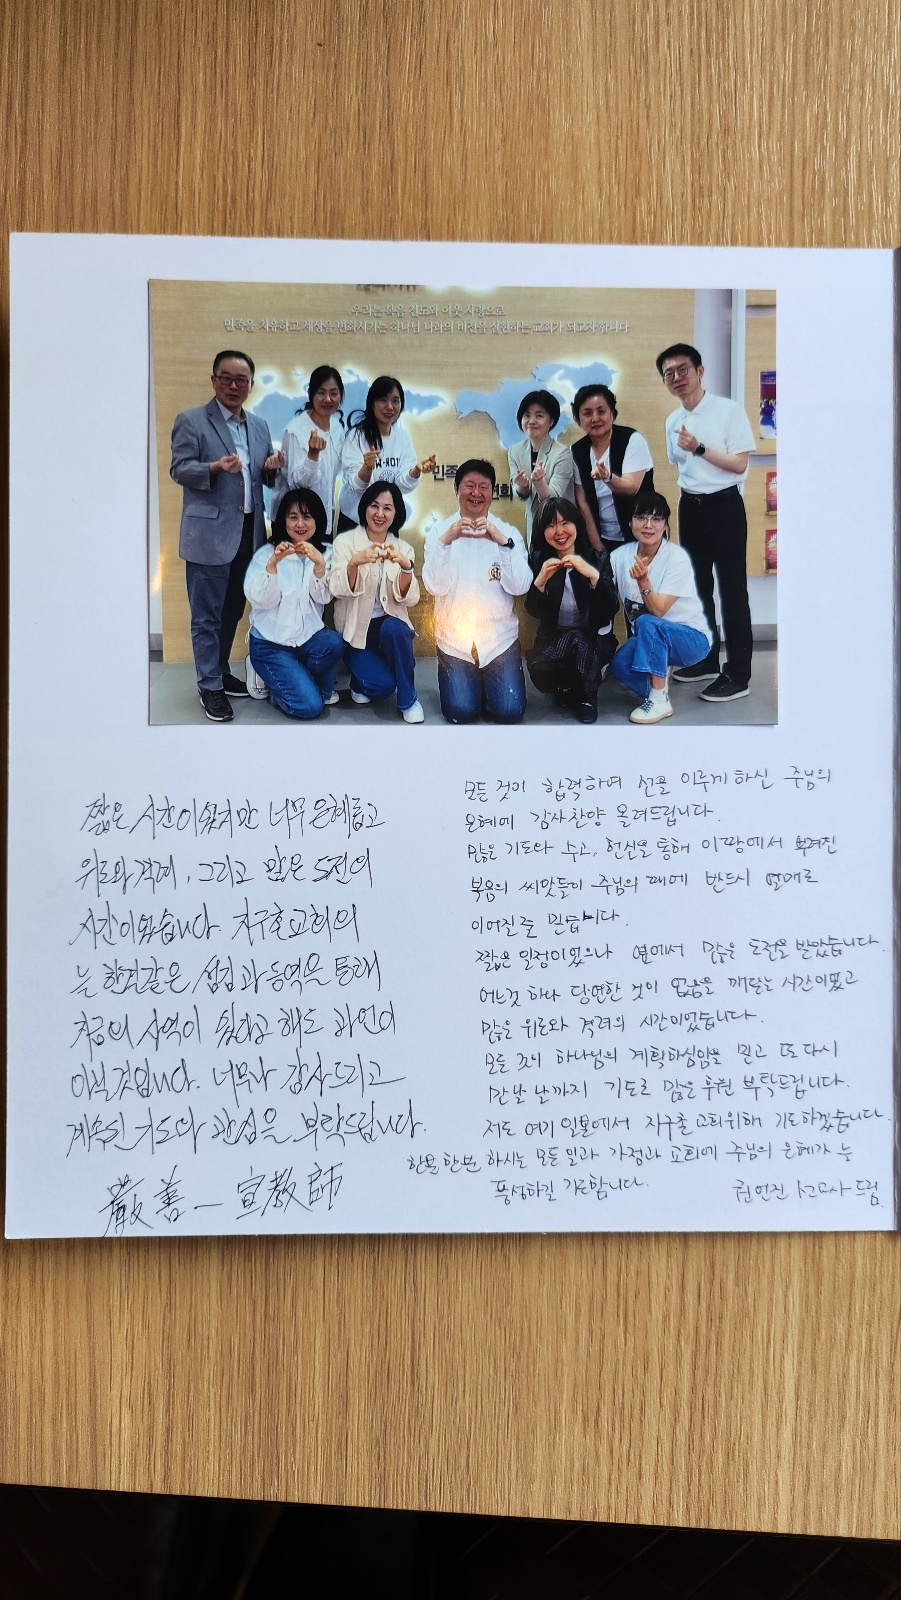 우리는 복음 전도와 이웃 사랑으로
민족을 치유하고 세상을 변화시키는 하나님 나라의 비전을 실현하는 교회가 되고자 합니다
민족
짧은 시간이었지만 너무 은혜롭고
위로와 격려, 그리고 많은 도전의
시간이었습니다. 지구촌교회의
늘 한결같은 섬김과 동역을 통해
지금의 사역이 있다고 해도 과언이
아닐 것입니다. 너무나 감사드리고
계속된 기도와 관심을 부탁드립니다.
嚴善一 宣教師
모든 것이 합력하여 선을 이루게 하신 주님의
은혜에 감사찬양 올려드립니다.
많은 기도와 수고, 헌신을 통해 이 땅에서 뿌려진
복음의 씨앗들이 주님의 때에 반드시 열매로
이어질줄 믿습니다.
짧은 일정이었으나 옆에서 많은 도전을 받았습니다.
어느것 하나 당연한 것이 없음을 깨닫는 시간이었고
많은 위로와 격려의 시간이었습니다.
모든 것이 하나님의 계획하심임을 믿고 또 다시
만날 날까지 기도로 많은 후원 부탁드립니다.
저도 여기 일본에서 지구촌 교회위해 기도하겠습니다.
한분 한분 하시는 모든 일과 가정과 교회에 주님의 은혜가 늘
풍성하길 기도합니다.
권연진 선교사 드림